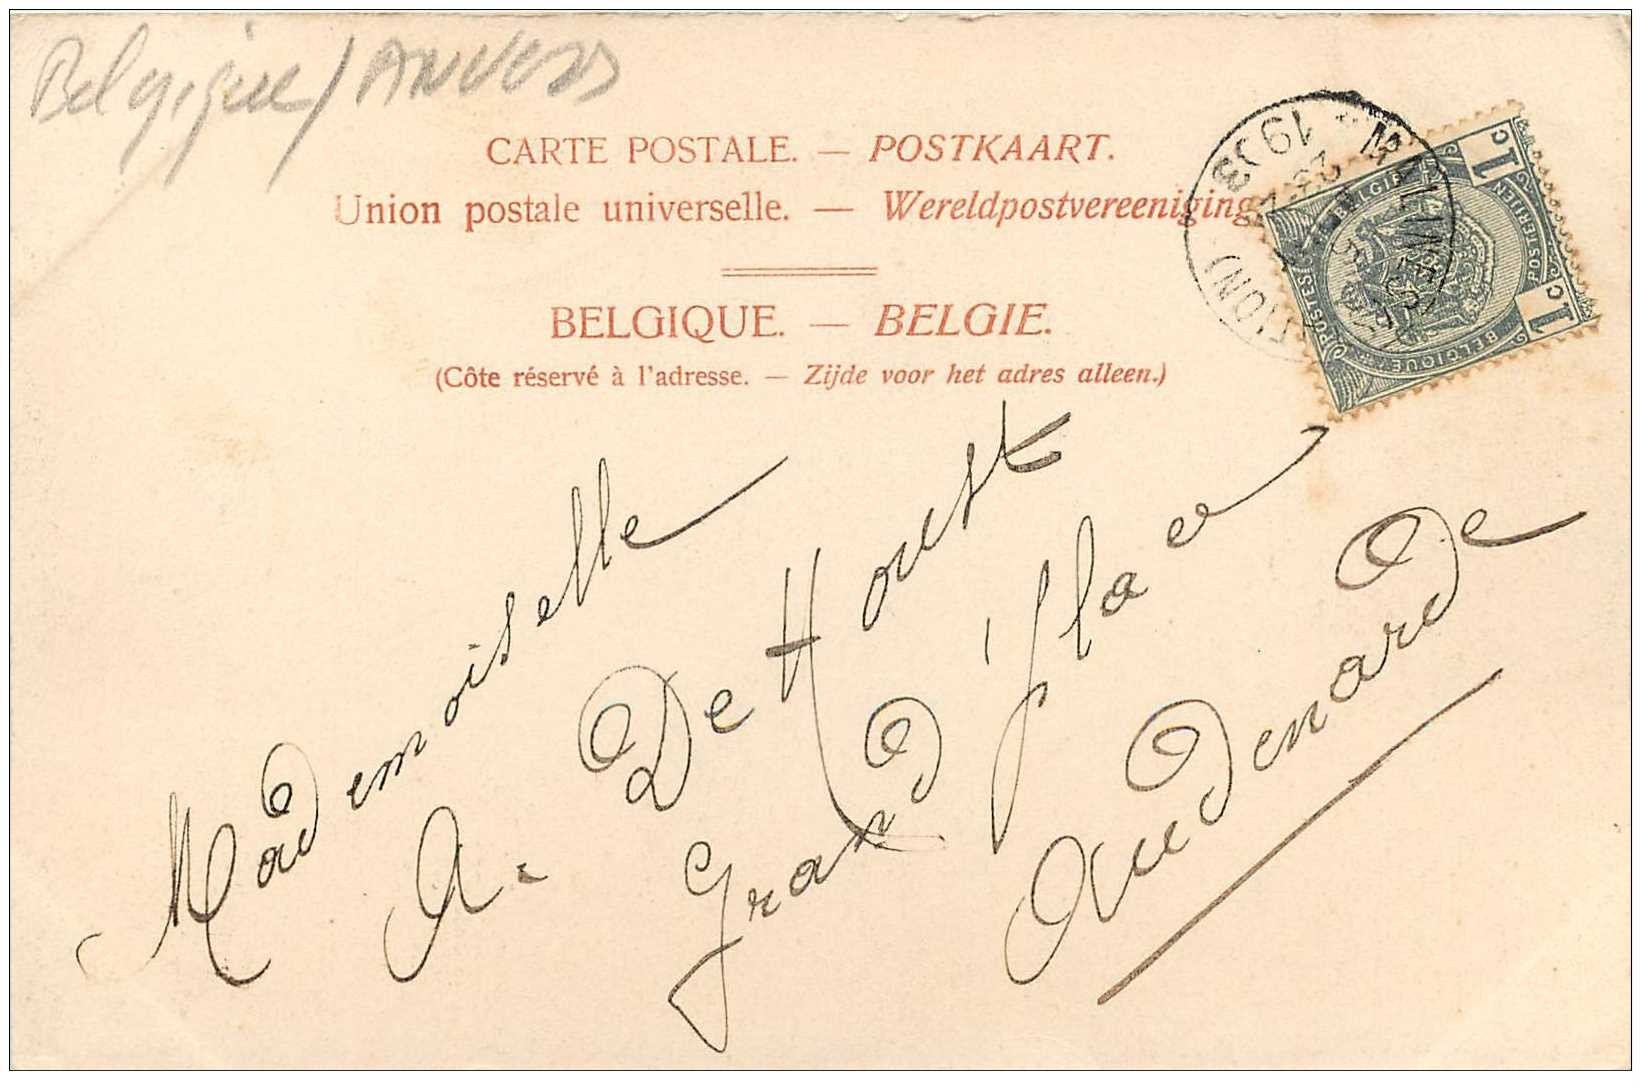 Belgique/ANVERS
CARTE POSTALE. — POSTKAART.
Union postale universelle. — Wereldpostvereeniging
BELGIQUE. — BELGIE.
(Côte réservé à l'adresse. — Zijde voor het adres alleen.)
MALINES
1C
POSTES BELGIQUE
BELGIE POSTERIJEN
1C
Mademoiselle
A. De Houst
Grand'place
Audenarde